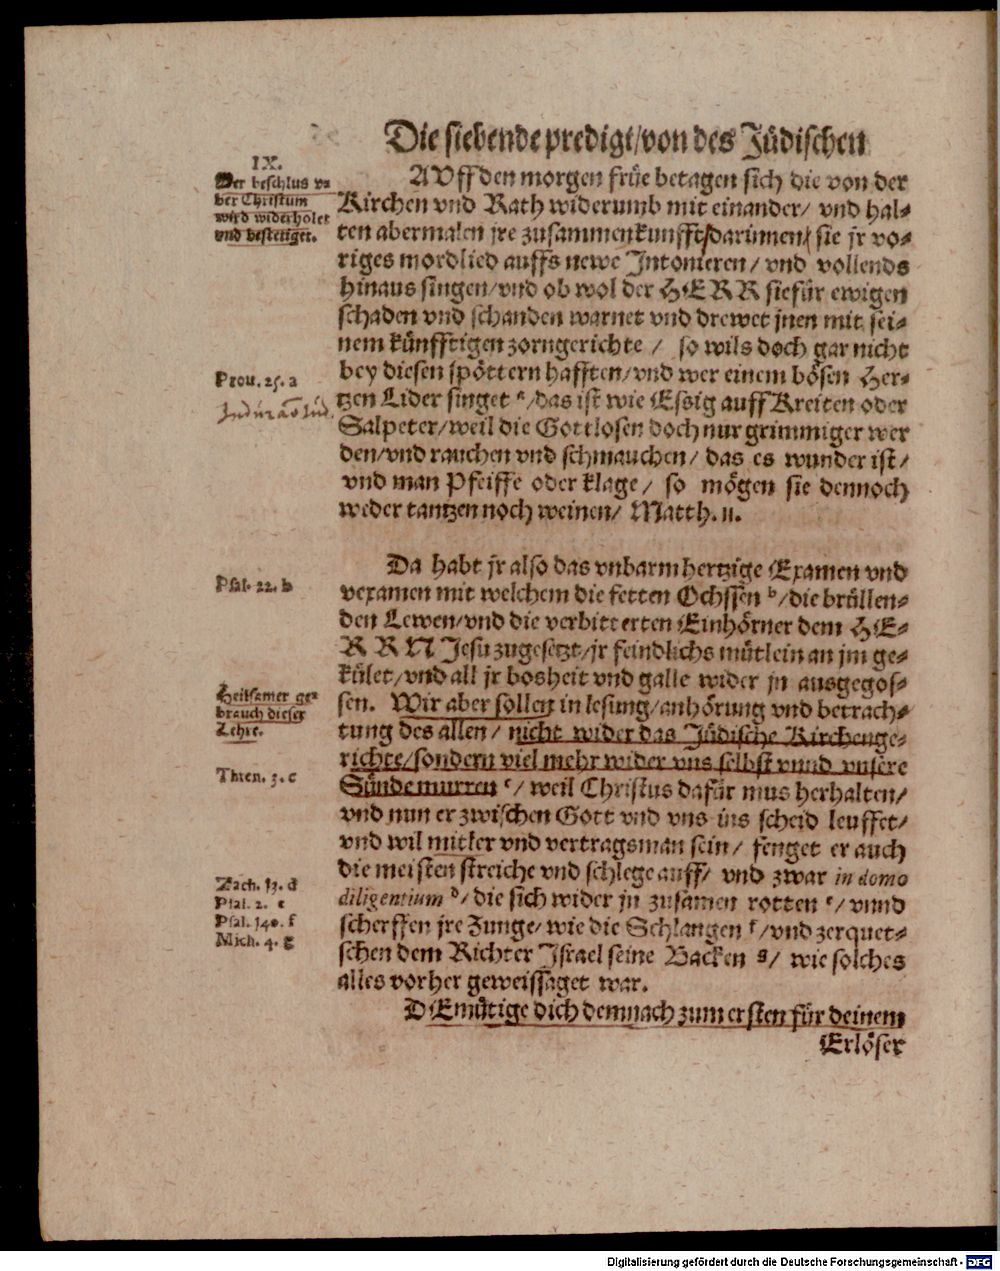 Die siebende predigt/von des Jüdischen
IX.
Der beschlus v=
ber Christum
wird widerholet
vnd bestetiget.
AVff den morgen früe betagen sich die von der
Kirchen vnd Rath widerumb mit einander/ vnd hal=
ten abermalen jre zusammenkunfft/darinnen/ sie jr vo=
riges mordlied auffs newe Intonieren/ vnd vollends
hinaus singen/vnd ob wol der HERR sie für ewigen
schaden vnd schanden warnet vnd drewet jnen mit sei=
nem künfftigen zorngerichte / so wils doch gar nicht
Prou. 25. a
bey diesen spöttern hafften/vnd wer einem bösen Her=
tzen Lider singet a/das ist wie Essig auff Kreiten oder
Salpeter/weil die Gottlosen doch nur grimmiger wer
den/vnd rauchen vnd schmauchen/ das es wunder ist/
vnd man Pfeiffe oder klage/ so mögen sie dennoch
weder tantzen noch weinen/ Matth. 11.
Da habt jr also das vnbarmhertzige Examen vnd
Psal. 22. b
vexamen mit welchem die fetten Ochssen b/die brüllen=
den Lewen/vnd die verbitterten Einhörner dem HE=
RRN Jesu zugesetzt/jr feindlichs mütlein an jm ge=
kület/vnd all jr bosheit vnd galle wider jn ausgegos=
Heilsamer ge=
brauch dieser
Lehre.
sen. Wir aber sollen in lesung/anhörung vnd betrach=
tung des allen/ nicht wider das Jüdische Kirchenge=
richte/sondern viel mehr wider vns selbst vnnd vnsere
Thren. 3. c
Sünde murren c/ weil Christus dafür mus herhalten/
vnd nun er zwischen Gott vnd vns ins scheid leuffet/
vnd wil mitler vnd vertragsman sein/ fenget er auch
die meisten streiche vnd schlege auff/ vnd zwar in domo
Zach. 13. d
Psal. 2. e
Psal. 140. f
Mich. 4. g
diligentium d/die sich wider jn zusamen rotten e/ vnnd
scherffen jre Zunge/ wie die Schlangen f/vnd zerquet=
schen dem Richter Israel seine Backen g/ wie solches
alles vorher geweissaget war.
DEmütige dich demnach zum ersten für deinem
Erlöser
Digitalisierung gefördert durch die Deutsche Forschungsgemeinschaft - DFG